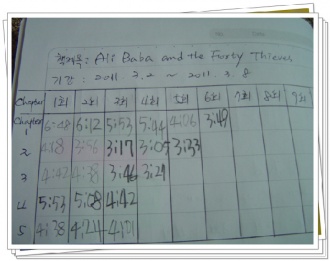 책제목: Ali Baba and the Forty Thieves
기간 : 2011. 3.2 ~ 2011. 3. 8
Chapter 1회 2회 3회 4회 5회 6회 7회 8회 9회
Chapter 1 6:48 6:12 5:53 5:44 4:06 3:49
2 4:18 3:56 3:17 3:05 3:33
3 4:42 4:38 3:46 3:29
4 5:53 5:08 4:42
5 4:38 4:24 4:01